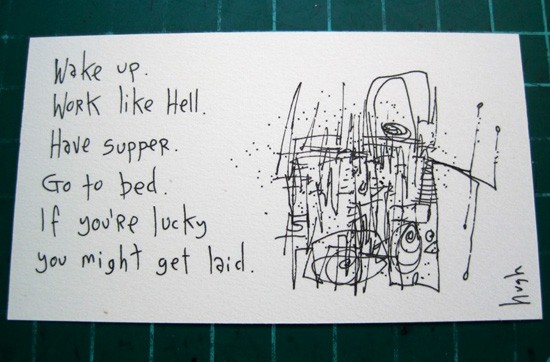 Wake up.
Work like Hell.
Have supper.
Go to bed.
If you're lucky
you might get laid.
hugh